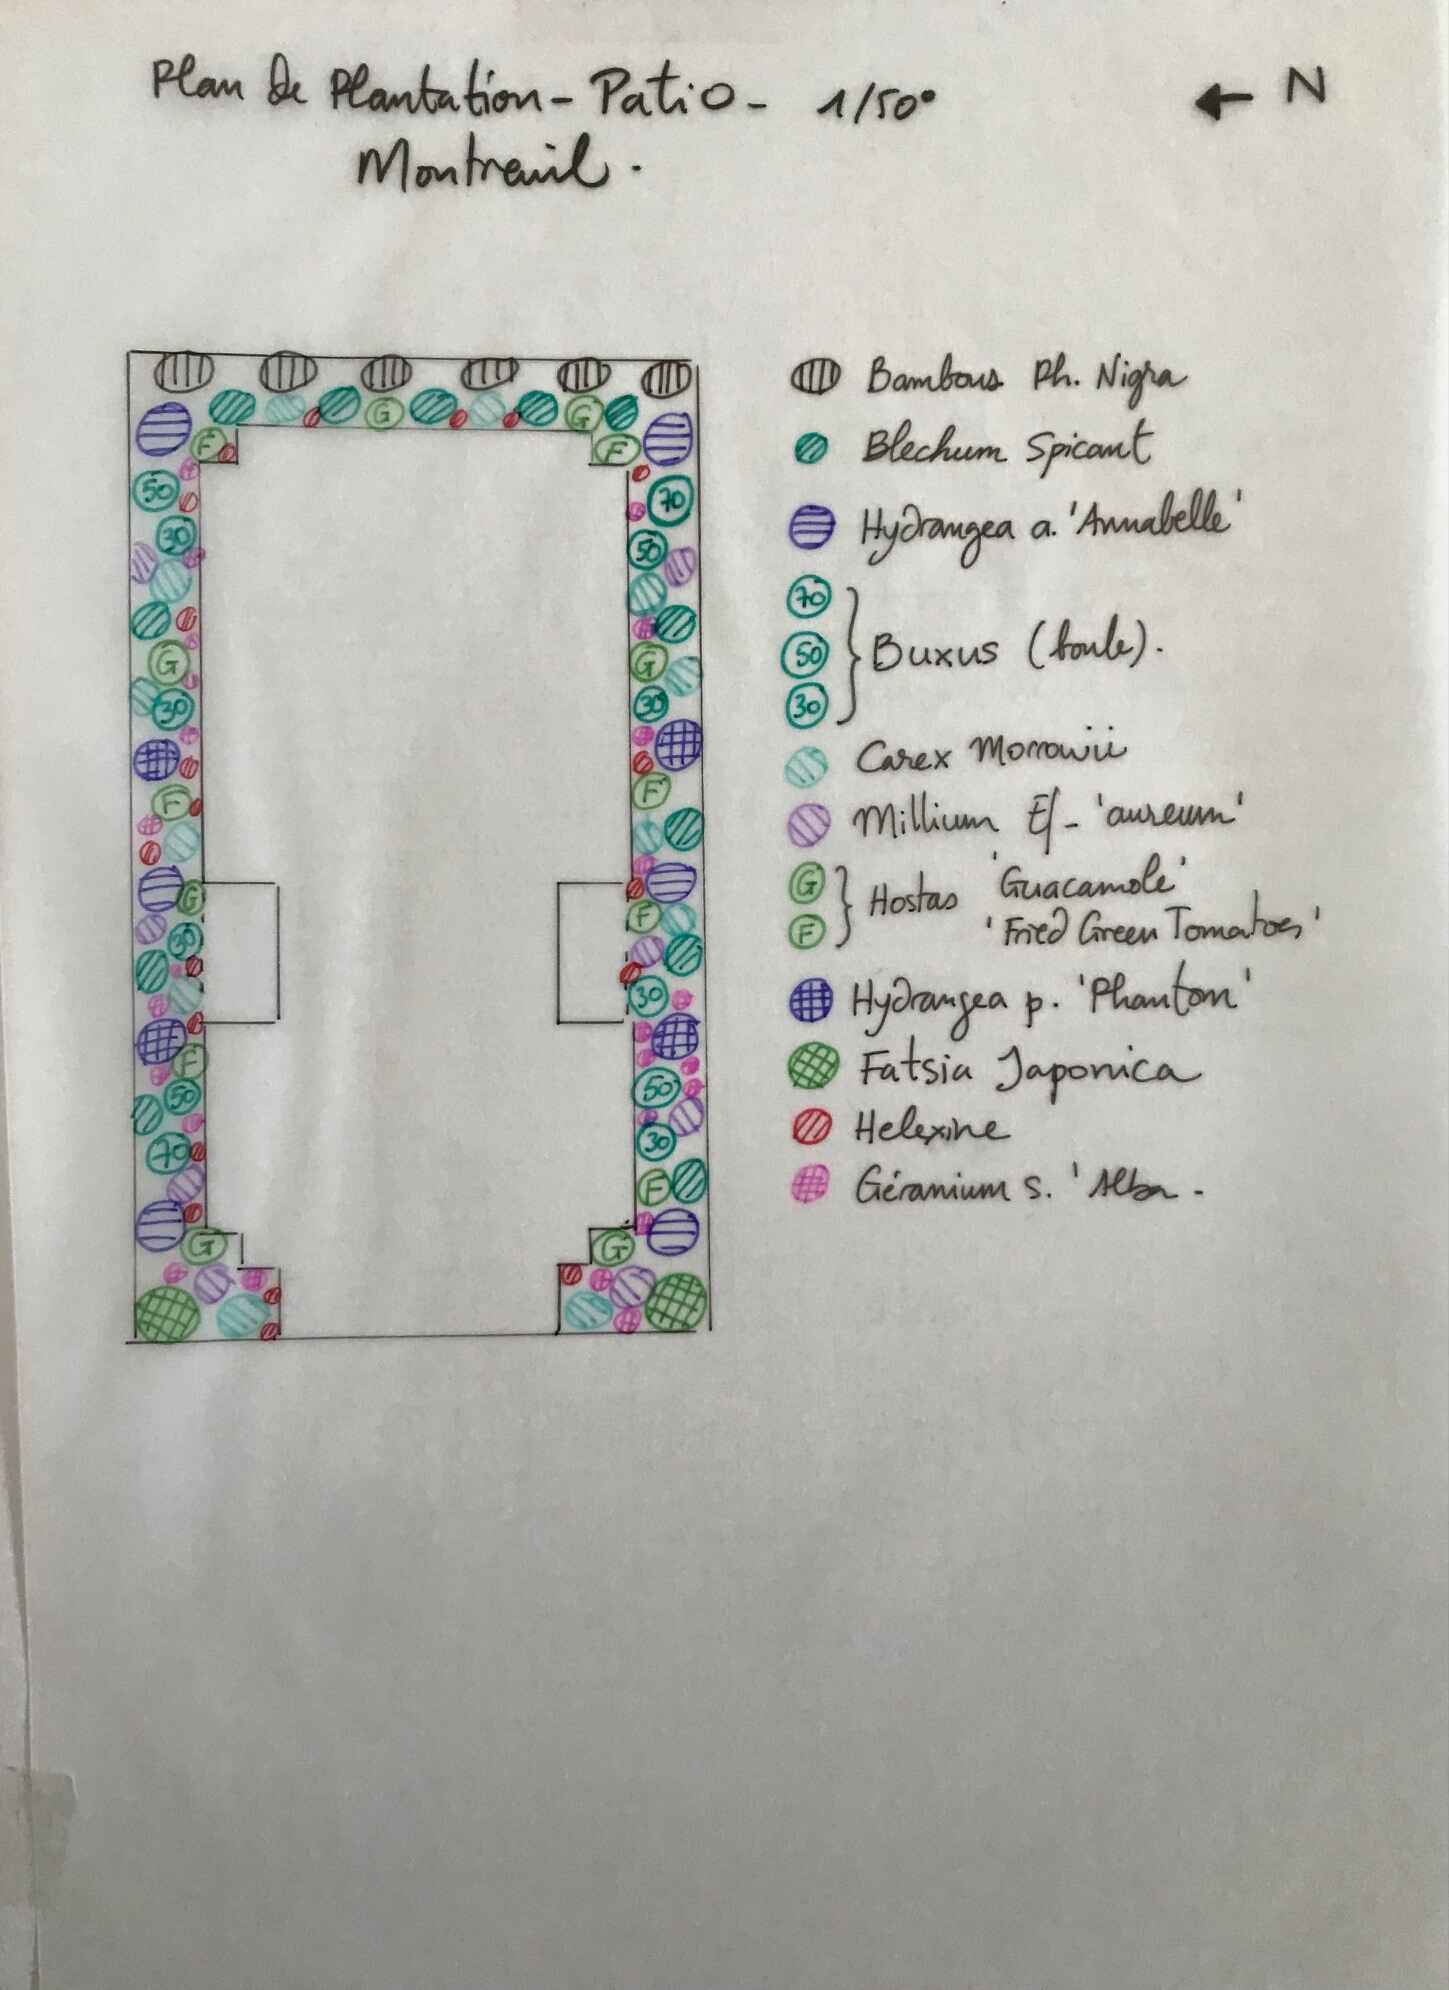 Plan de Plantation - Patio - 1/50°
Montreuil.
N
Bambous Ph. Nigra
Blechum Spicant
Hydrangea a. 'Annabelle'
70
50
30
Buxus (boule).
Carex Morrowii
Millium Ef - 'aureum'
G
F
Hostas 'Guacamole'
'Fried Green Tomatoes'
Hydrangea p. 'Phantom'
Fatsia Japonica
Helexine
Géranium s. 'Alba -
G
G
F
F
50
70
30
50
G
G
30
30
F
F
G
F
30
30
F
50
50
70
30
F
G
G